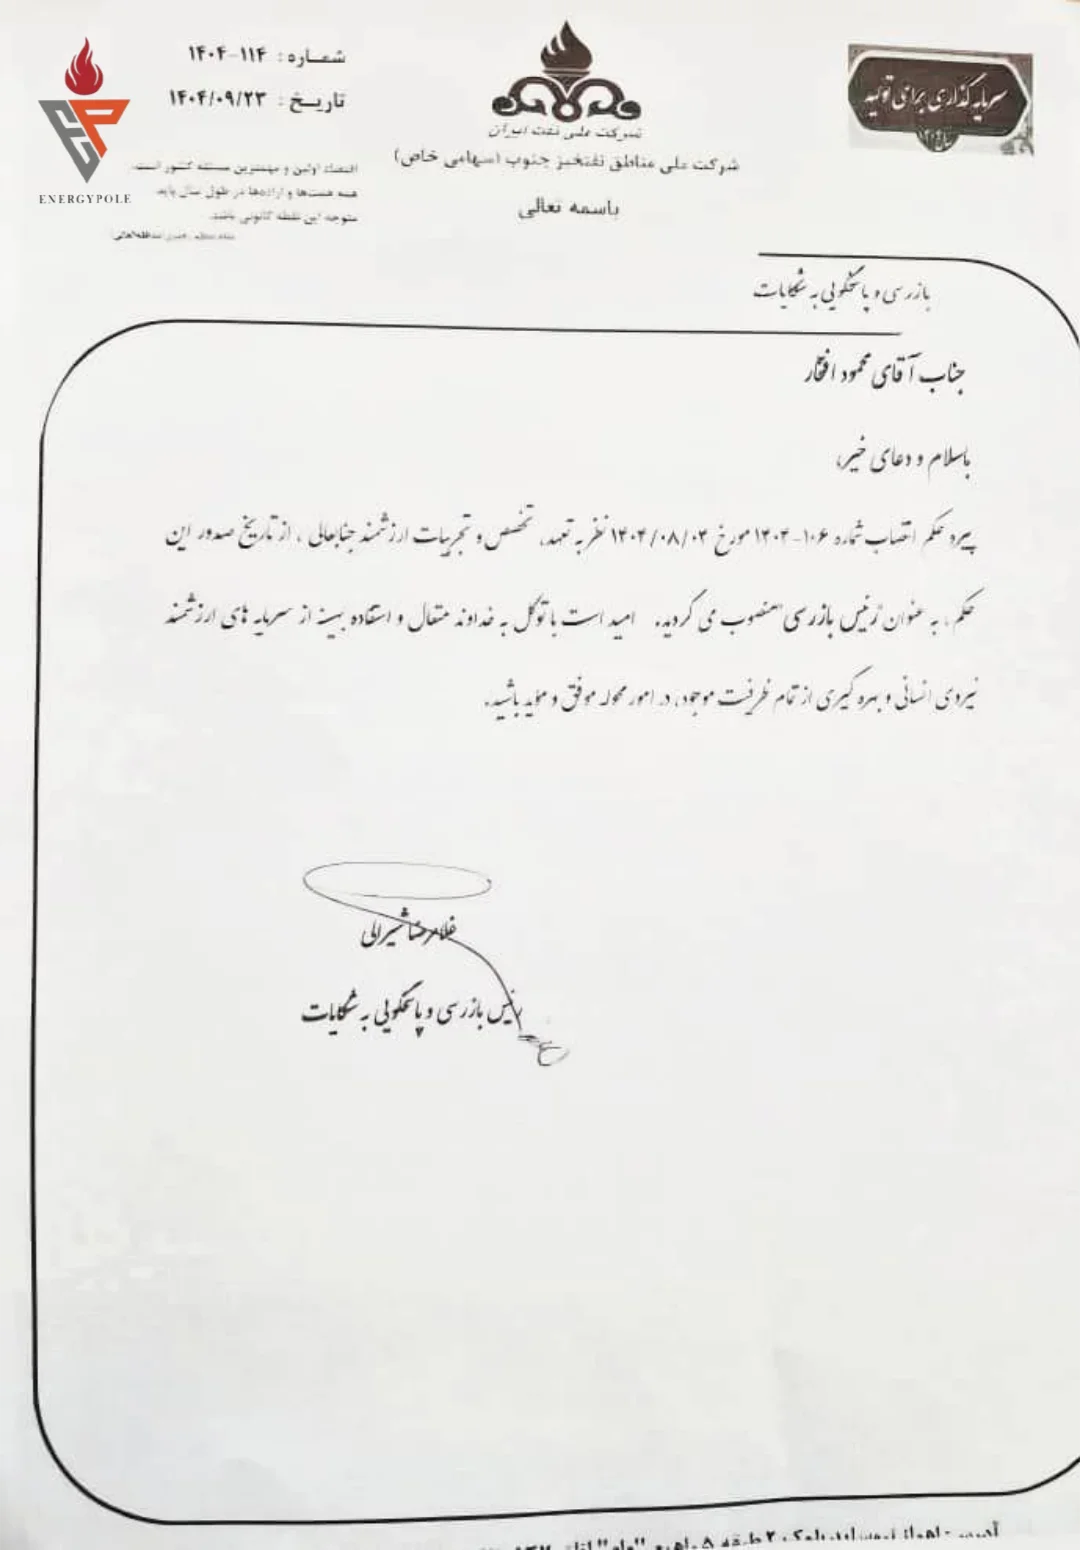 شماره: ۱۱۴-۱۴۰۴
تاریخ: ۱۴۰۴/۰۹/۲۳
ENERGYPOLE
اقتصاد اولین و مهمترین مسئله کشور است.
همه همت‌ها و اراده‌ها در طول سال باید
متوجه این نقطه کانونی باشد.
شرکت ملی نفت ایران
شرکت ملی مناطق نفتخیز جنوب (سهامی خاص)
باسمه تعالی
سرمایه گذاری برای تولید
بازرسی و پاسخگویی به شکایات
جناب آقای محمود افتخار
باسلام و دعای خیر،
پیرو حکم انتصاب شماره ۱۰۶-۱۴۰۴ مورخ ۱۴۰۴/۰۸/۰۴ نظر به تعهد، تخصص و تجربیات ارزشمند جنابعالی، از تاریخ صدور این
حکم، به عنوان رئیس بازرسی منصوب می گردید. امید است با توکل به خداوند متعال و استفاده بهینه از سرمایه های ارزشمند
نیروی انسانی و بهره گیری از تمام ظرفیت موجود، در امور محوله موفق و موید باشید.
غلامرضا شیرالی
رئیس بازرسی و پاسخگویی به شکایات